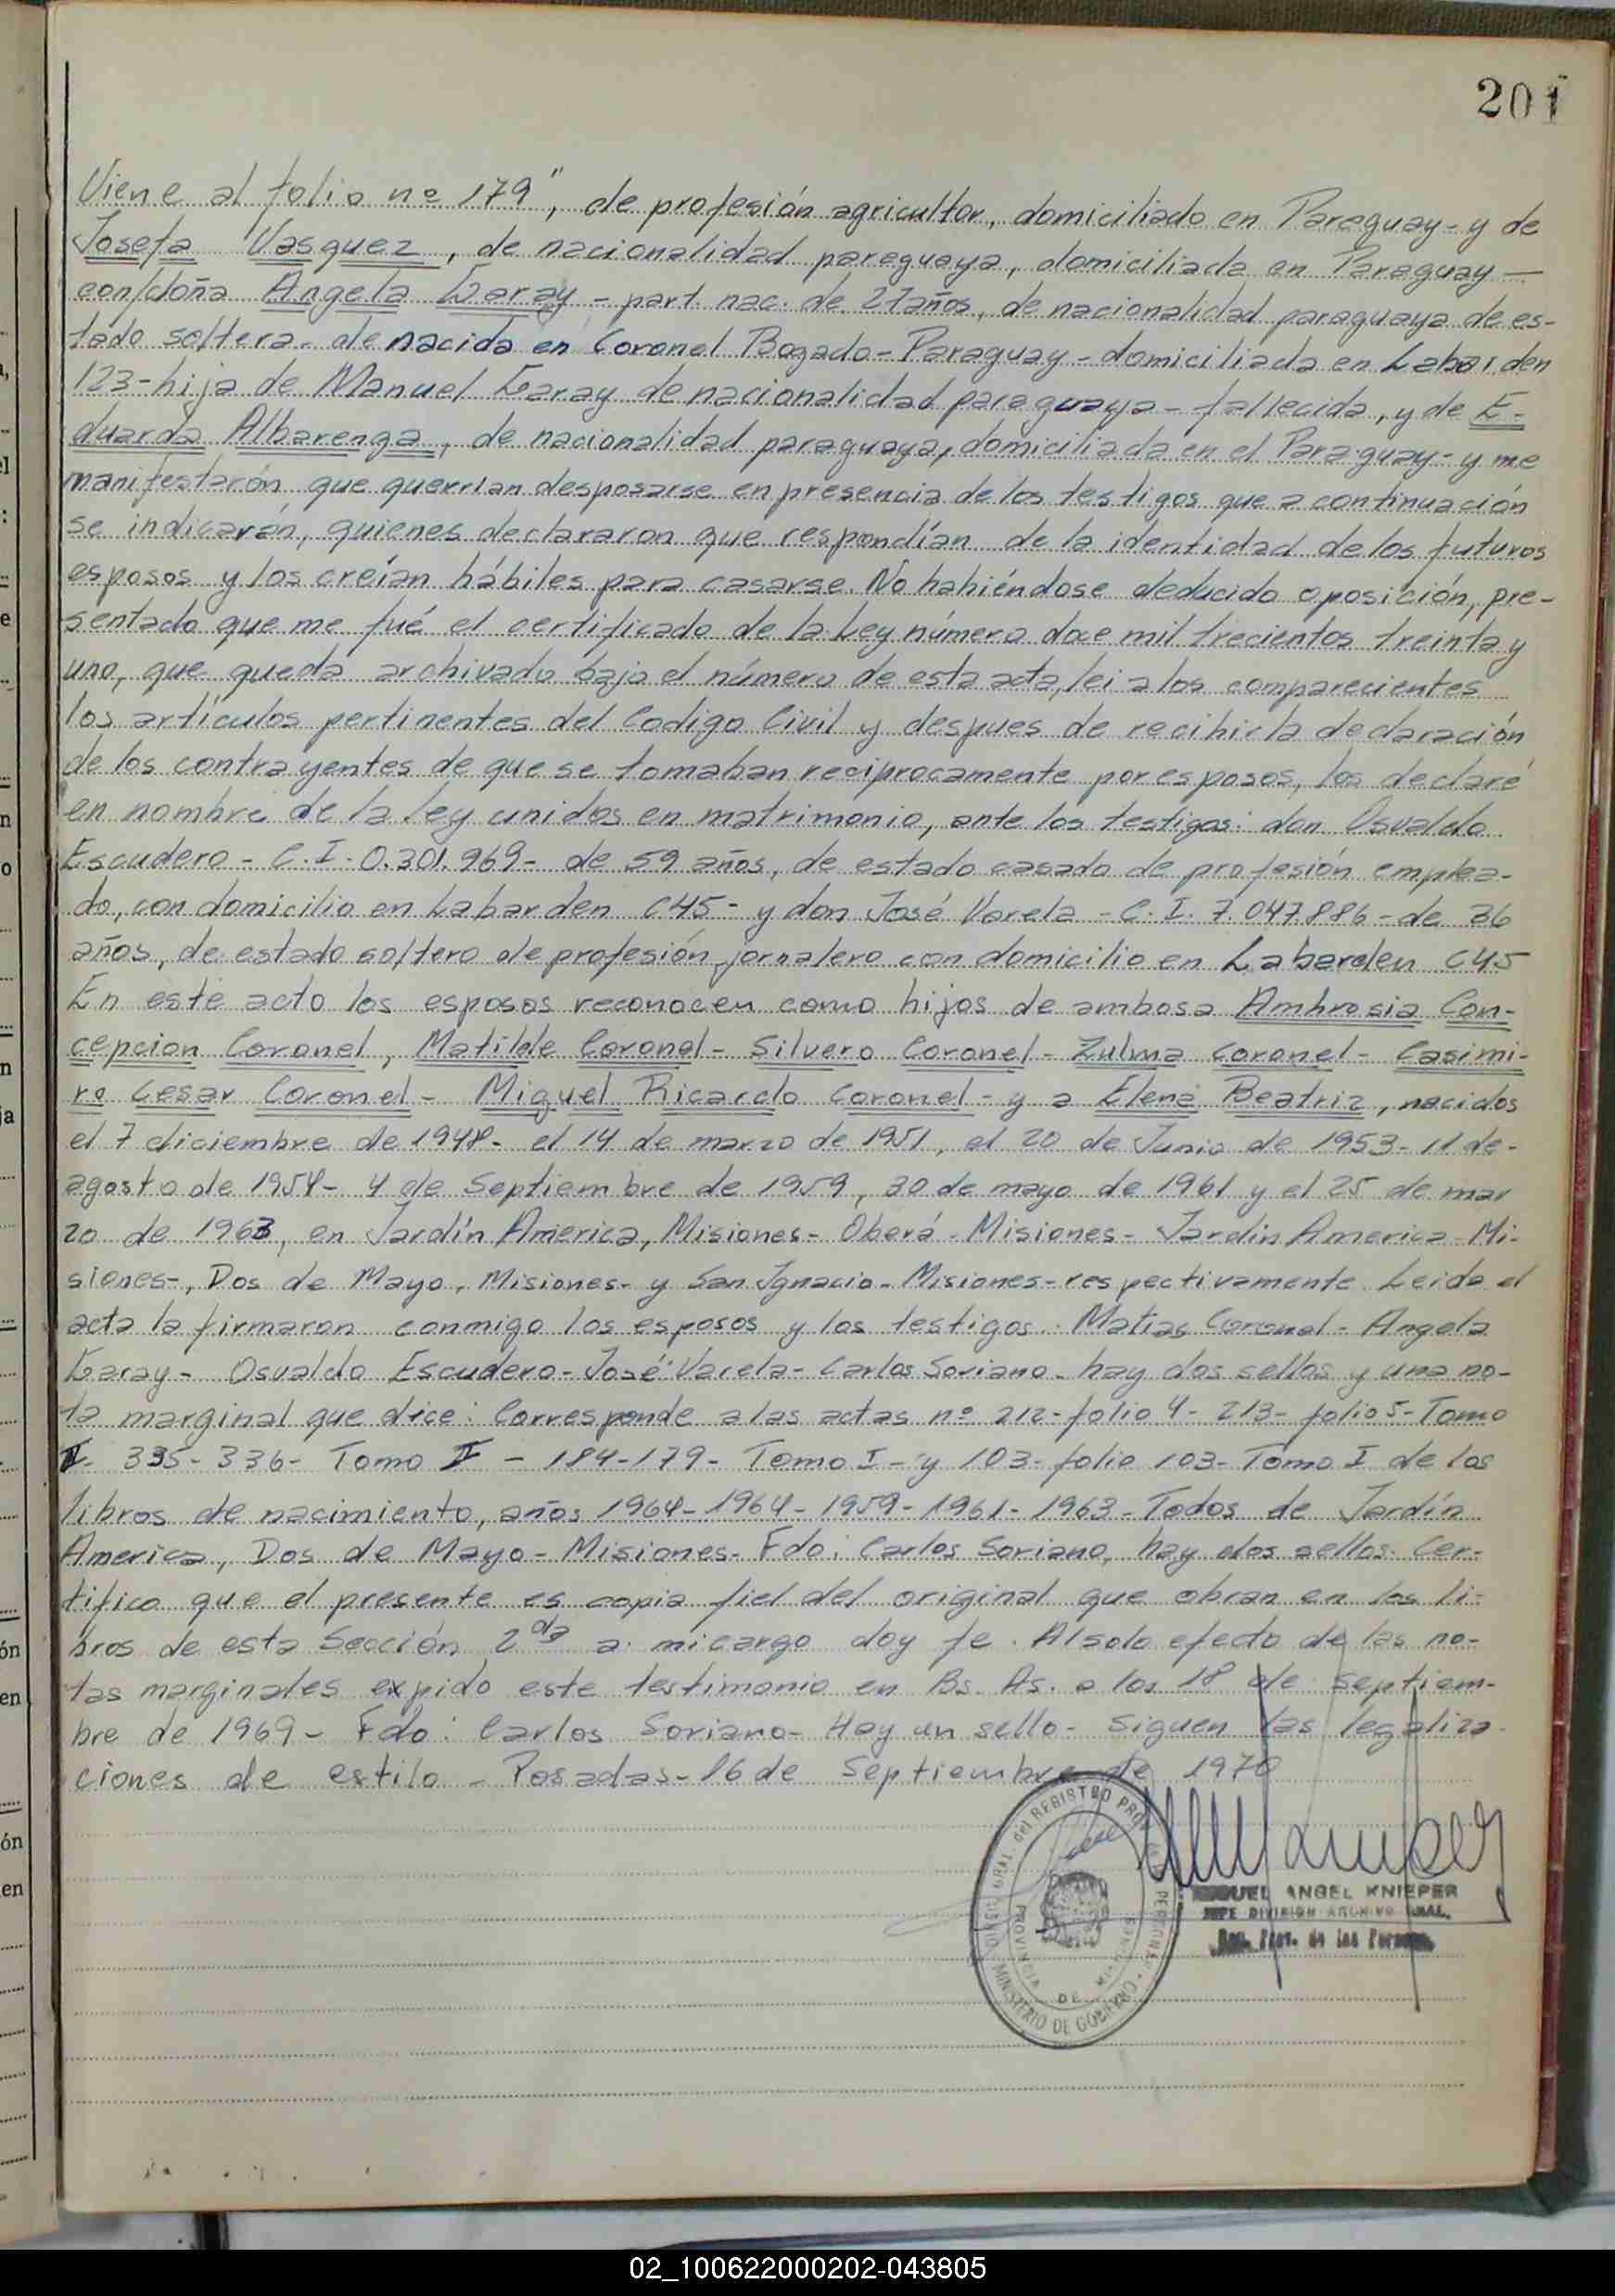 201
Viene al folio nº 179", de profesión agricultor, domiciliado en Paraguay - y de
Josefa Vasquez, de nacionalidad paraguaya, domiciliada en Paraguay —
con/doña Angela Garay - part. nac. de 27 años, de nacionalidad paraguaya de es-
tado soltera. de nacida en Coronel Bogado - Paraguay - domiciliada en Labarden
123 - hija de Manuel Garay de nacionalidad paraguaya - fallecida, y de E-
duarda Albarenga, de nacionalidad paraguaya, domiciliada en el Paraguay - y me
manifestarón que querrían desposarse en presencia de los testigos que a continuación
se indicarán, quienes declararon que respondían de la identidad de los futuros
esposos y los creían hábiles para casarse. No habiéndose deducido oposición, pre-
sentado que me fué el certificado de la Ley número doce mil trecientos treinta y
uno, que queda archivado bajo el número de esta acta, lei a los comparecientes
los artículos pertinentes del Codigo Civil y despues de recibir la declaración
de los contrayentes de que se tomaban reciprocamente por esposos, los declaré
en nombre de la ley unidos en matrimonio, ante los testigos: don Osvaldo
Escudero - C.I. 0.301.969 - de 59 años, de estado casado de profesión emplea-
do, con domicilio en Labarden C45 - y don José Varela - C.I. 7.047.886 - de 36
años, de estado soltero de profesión jornalero con domicilio en Labarden C45
En este acto los esposos reconocen como hijos de ambosa Ambrosia Con-
cepcion Coronel, Matilde Coronel - Silvero Coronel - Zulma Coronel - Casimi-
ro Cesar Coronel - Miguel Ricardo Coronel - y a Elena Beatriz, nacidos
el 7 diciembre de 1948 - el 14 de marzo de 1951, el 20 de Junio de 1953 - 11 de -
agosto de 1954 - 4 de Septiembre de 1959, 30 de mayo de 1961 y el 25 de mar
zo de 1963, en Jardín America, Misiones - Oberá - Misiones - Jardin America - Mi-
siones -, Dos de Mayo, Misiones - y San Ignacio - Misiones - respectivamente. Leida el
acta la firmaron conmigo los esposos y los testigos. Matias Coronel - Angela
Garay - Osvaldo Escudero - José Varela - Carlos Soriano - hay dos sellos y una no-
ta marginal que dice: Corresponde a las actas nº 212 - folio 4 - 213 - folio 5 - Tomo
II - 335 - 336 - Tomo II - 184 - 179 - Tomo I - y 103 - folio 103 - Tomo I de los
libros de nacimiento, años 1964 - 1964 - 1959 - 1961 - 1963 - Todos de Jardín
America, Dos de Mayo - Misiones - Fdo: Carlos Soriano, hay dos sellos. Cer-
tifico que el presente es copia fiel del original que obran en los li-
bros de esta Sección 2da a mi cargo doy fe. Al solo efecto de las no-
tas marginales expido este testimonio en Bs. As. a los 18 de septiem-
bre de 1969 - Fdo: Carlos Soriano - Hay un sello - Siguen las legaliza-
ciones de estilo - Posadas - 16 de Septiembre de 1970
MIGUEL ANGEL KNIEPER
JEFE DIVISION ARCHIVO GRAL.
Reg. Prov. de las Personas
PROVINCIA DE MISIONES
MINISTERIO DE GOBIERNO
02_100622000202-043805